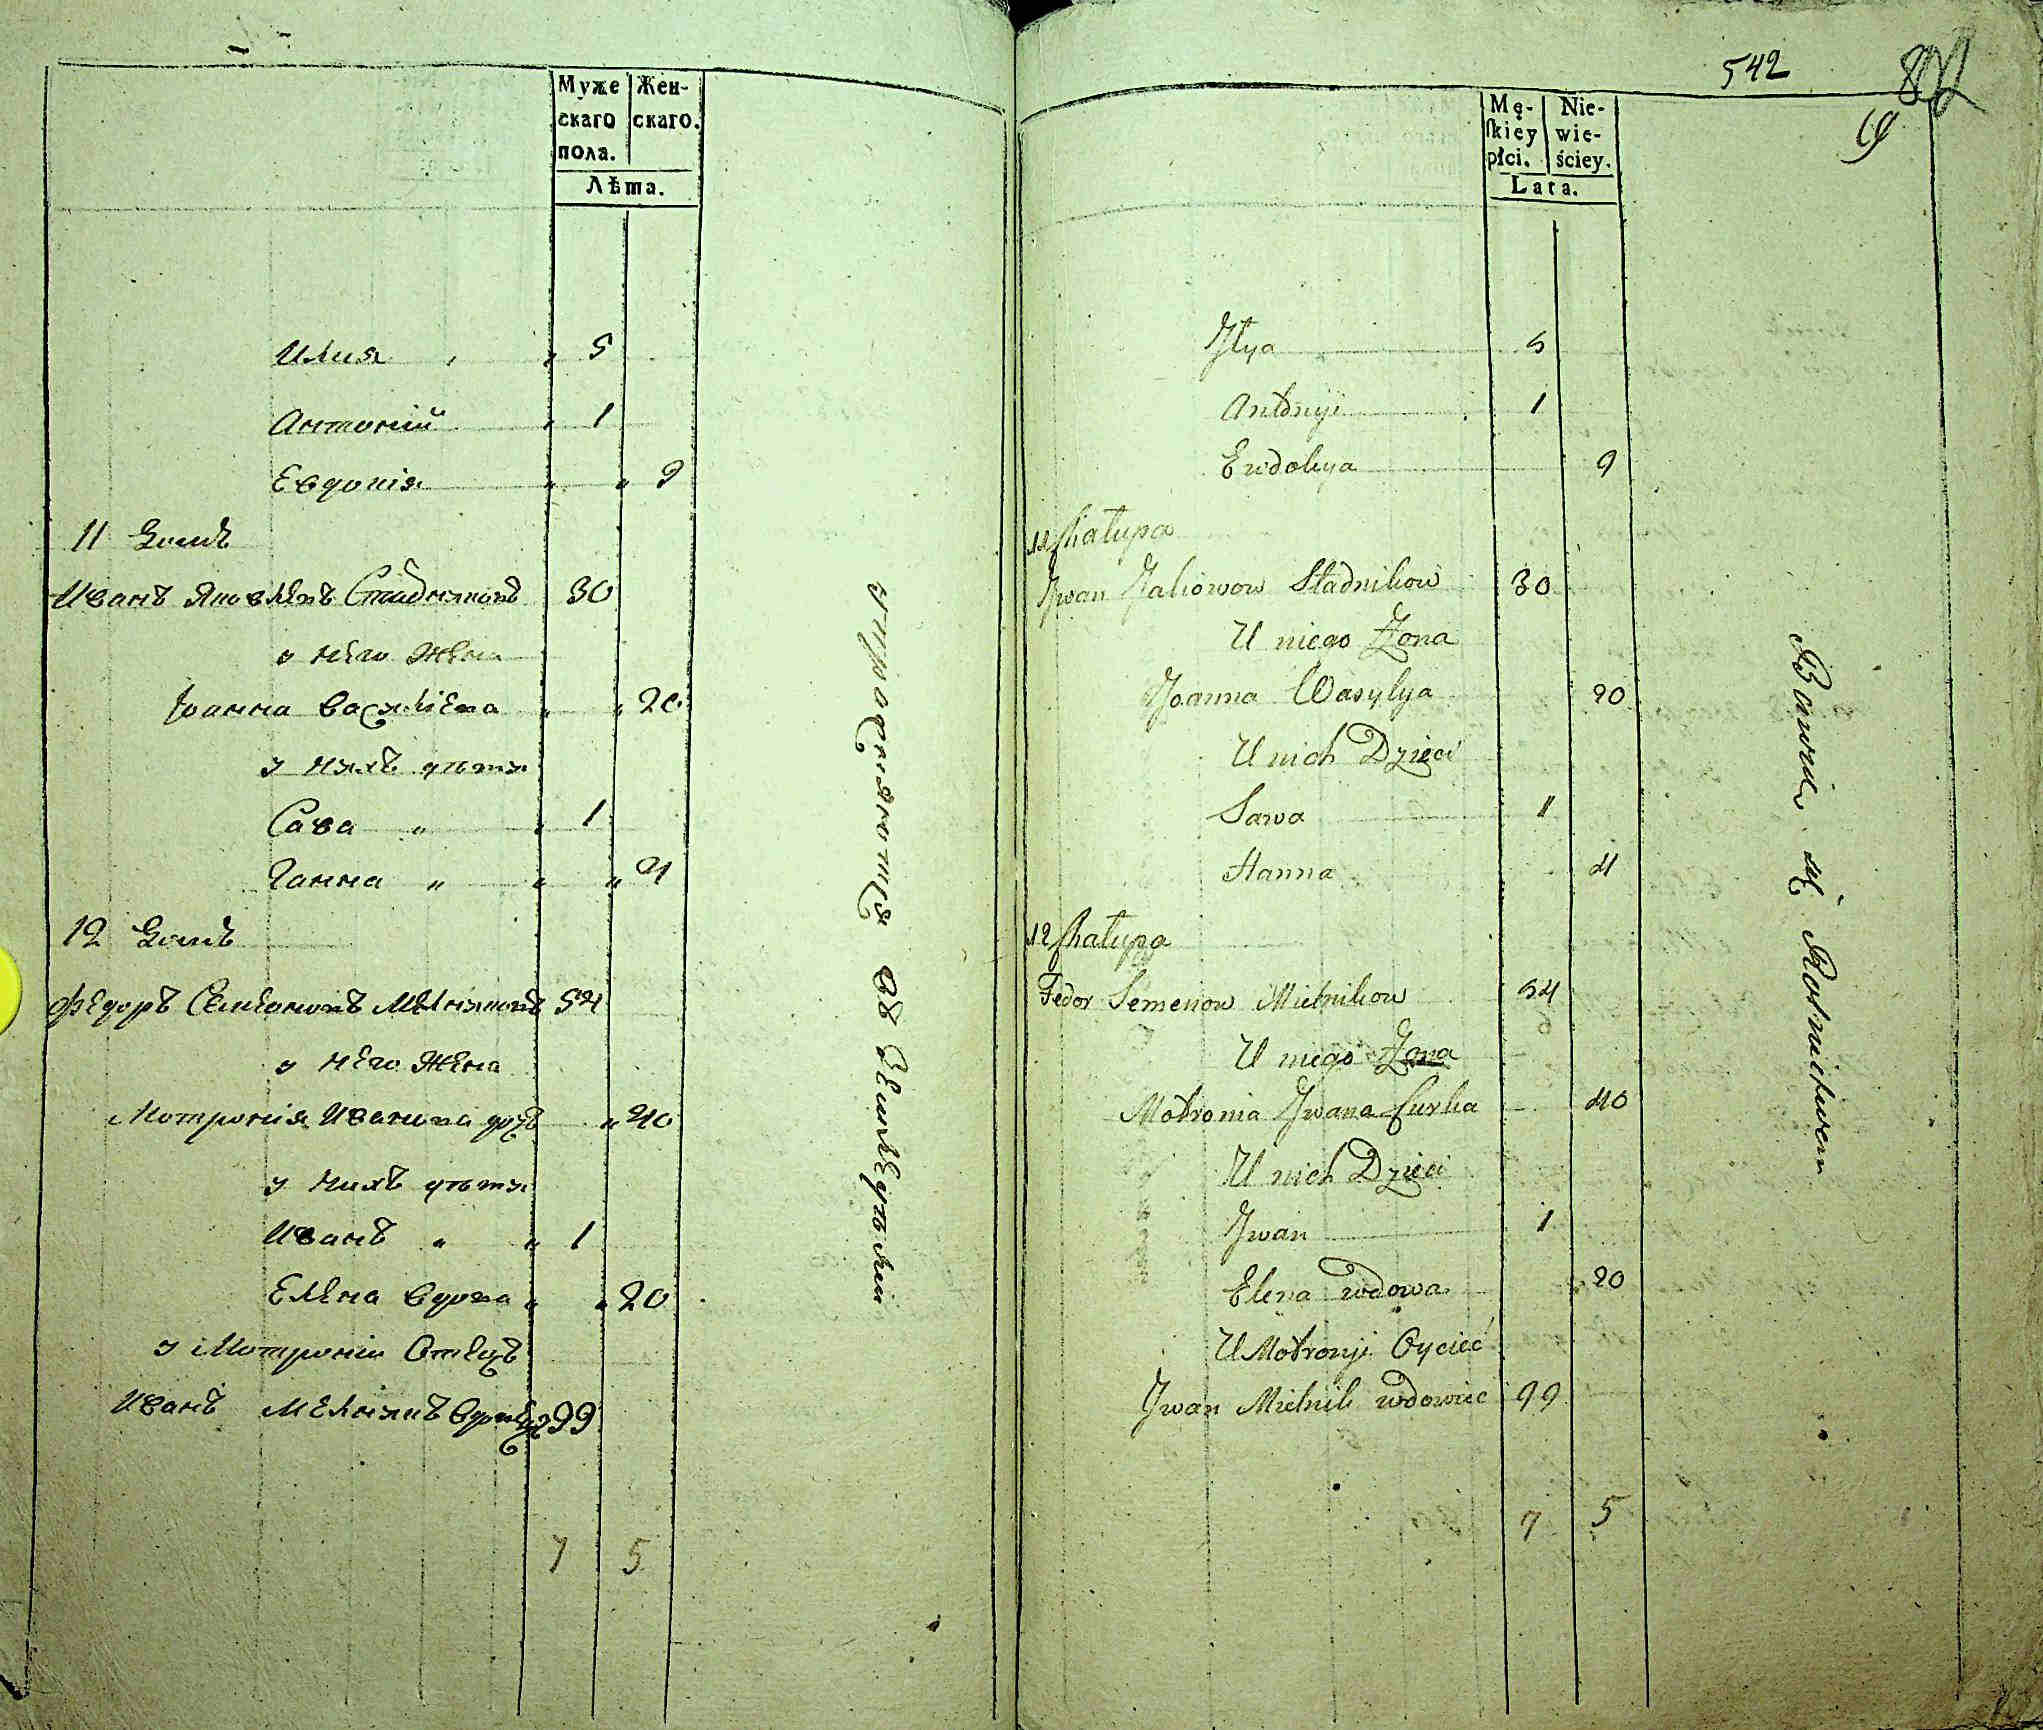 Муже
скаго
пола.
Жен-
скаго.
Лѣта.
Илия " " 5
Антоній " 1
Евдокія " " 9
11 Домъ
Иванъ Яковлевъ Стадниковъ 30
у него жена
Іоанна Василіева " " 20
у нихъ дѣти
Сава " " 1
Ганна " " " 4
12 Домъ
Федоръ Семеновъ Мельниковъ 54
у него жена
Мотронія Иванова дочь " 40
у нихъ дѣти
Иванъ " " 1
Елена вдова " " 20
у Мотроніи Отецъ
Иванъ Мельникъ вдовецъ 99
7 5
упродняются въ Земледѣліи
542
19
Mę-
skiey
płci.
Nie-
wie-
ściey.
Lata.
Jłya 5
Antonij 1
Ewdokya 9
11 Chałupa
Jwan Jakowow Stadnikow 30
U niego Żona
Joanna Wasylya 20
U nich Dzieci
Sawa 1
Hanna 4
12 Chałupa
Fedor Semenow Mielnikow 54
U niego Żona
Motronia Jwana Curka 40
U nich Dzieci
Jwan 1
Elena wdowa 20
U Motronji Oyciec
Jwan Mielnik wdowiec 99
7 5
Bawią się Rolnictwem